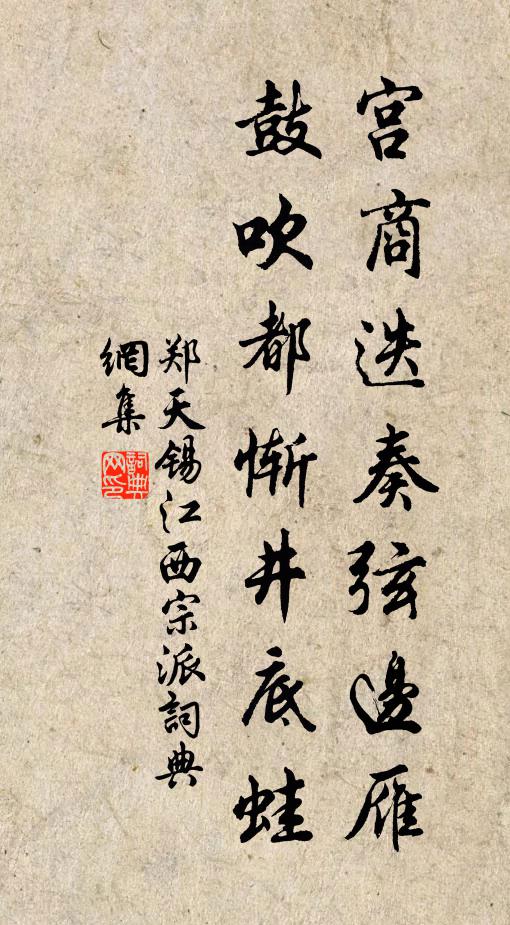 宫商迭奏弦邊雁
鼓吹都惭井底蛙
郑天锡江西宗派詞典
網集
詞典網印